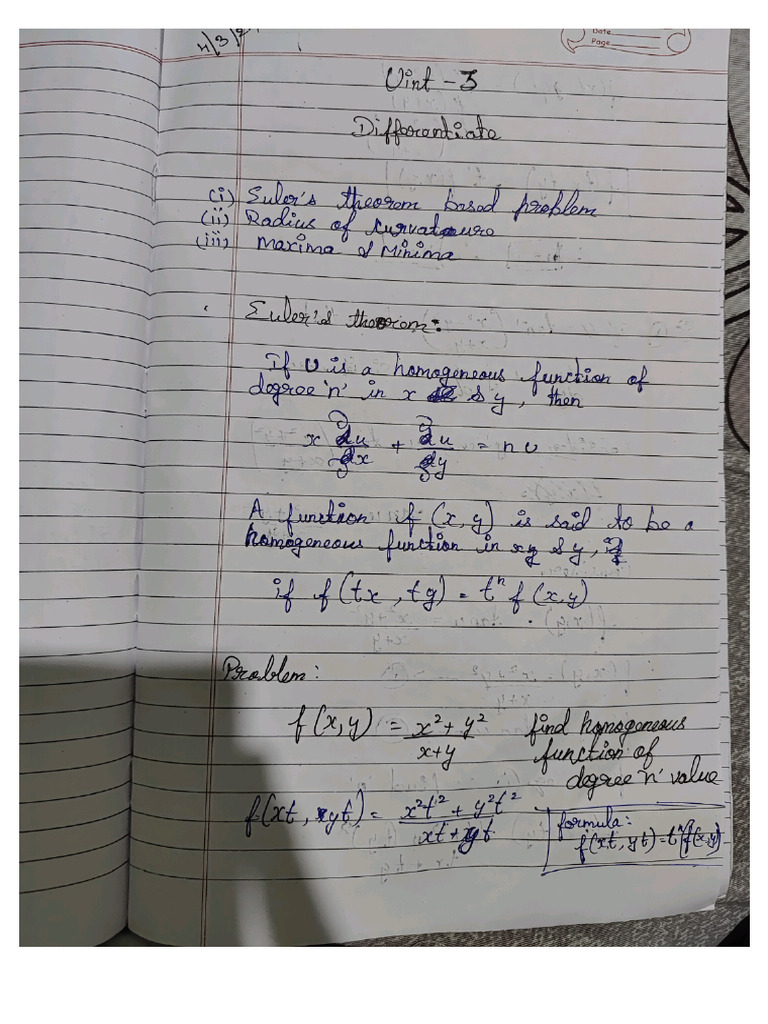 4/3/2
Date
Page
Uint - 3
Differentiate
(i) Euler's theorem based problem
(ii) Radius of curvature
(iii) Maxima & Minima
Euler's theorem:
If U is a homogeneous function of
degree 'n' in x & y, then
x ∂u/∂x + ∂u/∂y = n U
A function if (x, y) is said to be a
homogeneous function in x & y, if
if f(tx, ty) = tⁿ f(x, y)
Problem:
f(x, y) = x² + y² / x+y find homogeneous
function of
degree 'n' value
f(xt, yt) = x²t² + y²t² / xt + yt
formula:
f(xt, yt) = tⁿ f(x, y)